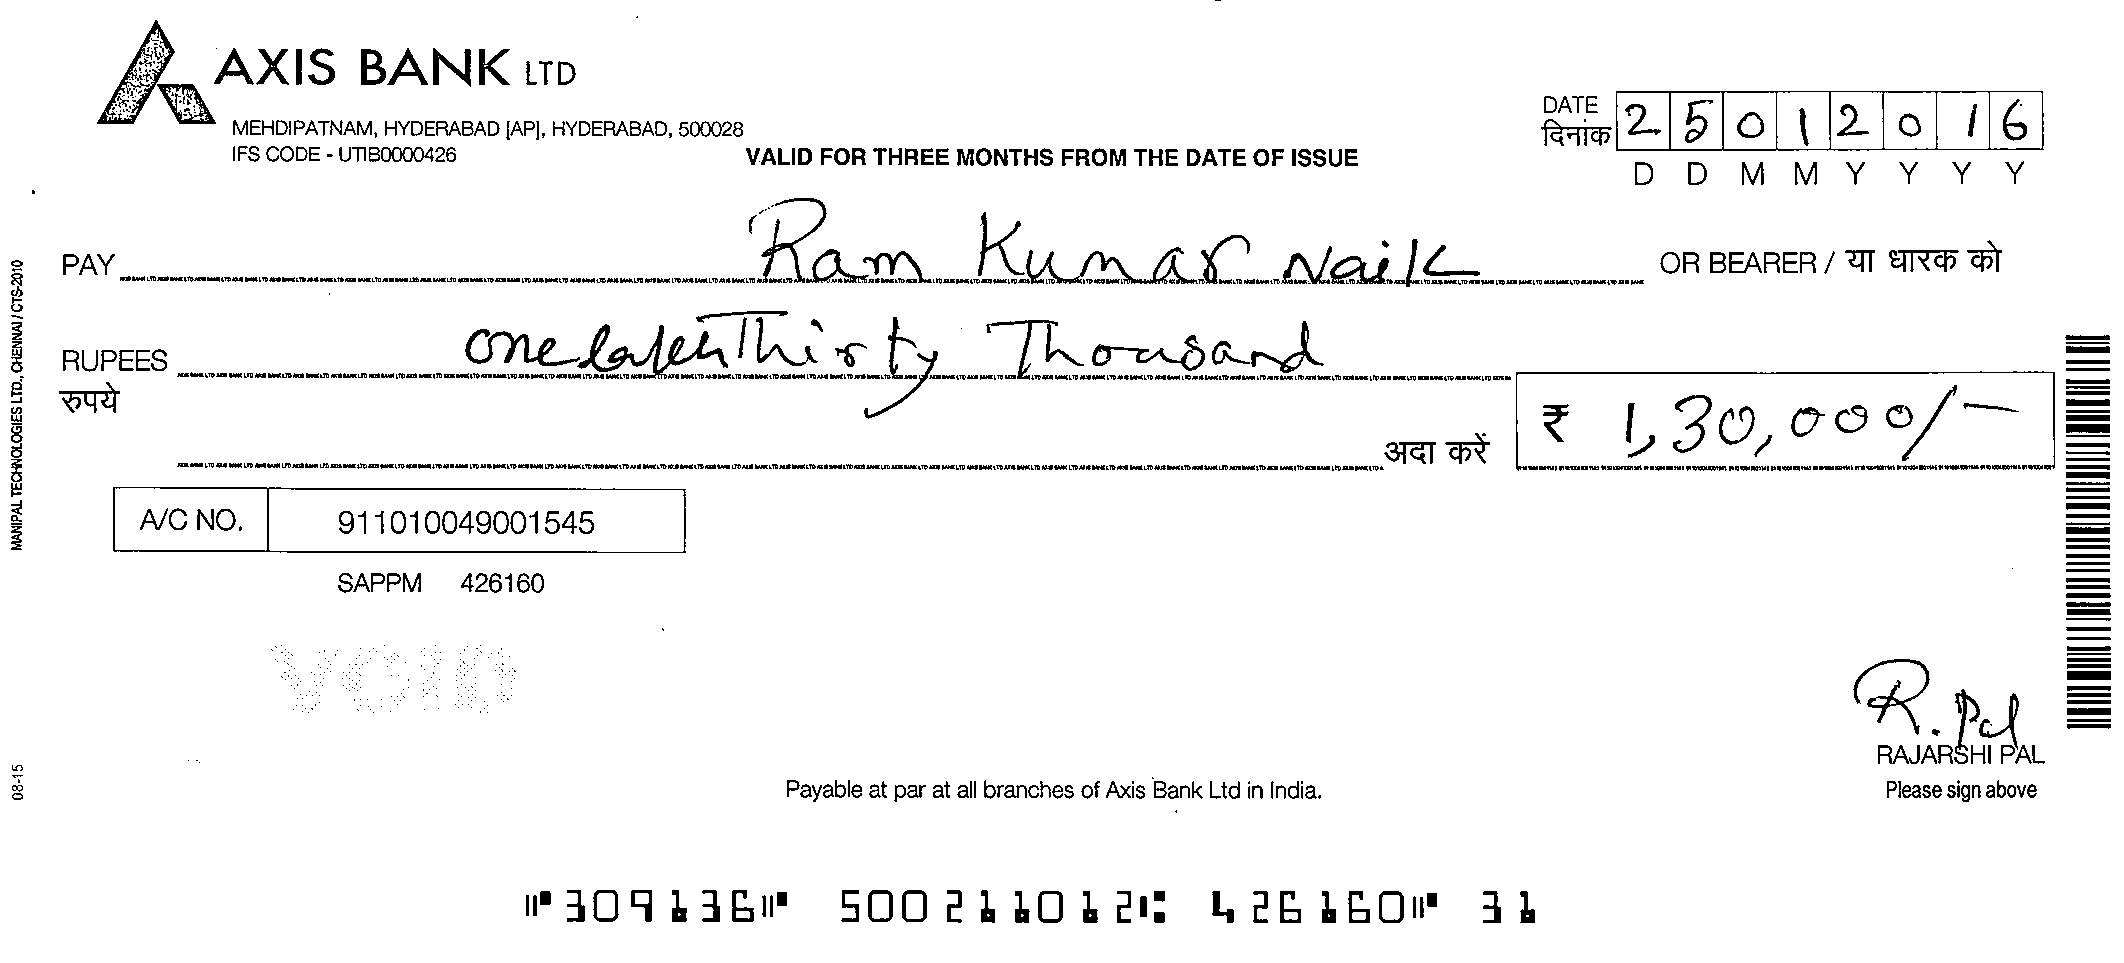 AXIS BANK LTD
MEHDIPATNAM, HYDERABAD [AP], HYDERABAD, 500028
IFS CODE - UTIB0000426
VALID FOR THREE MONTHS FROM THE DATE OF ISSUE
DATE
दिनांक 2 5 0 1 2 0 1 6
D D M M Y Y Y Y
PAY Ram Kumar Naik OR BEARER / या धारक को
RUPEES One lakh Thirty Thousand
रुपये
अदा करें ₹ 1,30,000/-
A/C NO. 911010049001545
SAPPM 426160
VOID
R. Pal
RAJARSHI PAL
Please sign above
Payable at par at all branches of Axis Bank Ltd in India.
309136 500211012 426160 31
MANIPAL TECHNOLOGIES LTD., CHENNAI / CTS-2010
08-15